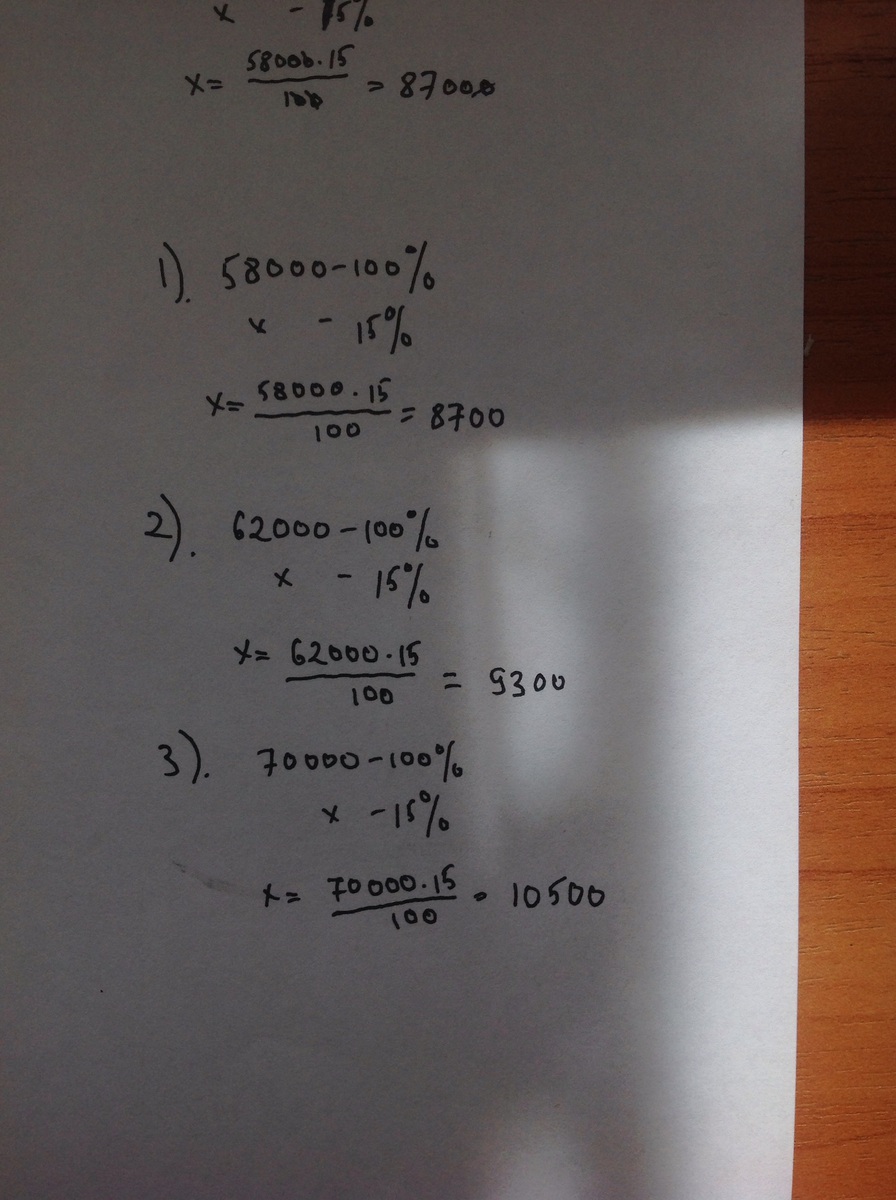 x - 15%
x= 58000·15
100 = 87000
1). 58000-100%
x - 15%
x= 58000·15
100 = 8700
2). 62000-100%
x - 15%
x= 62000·15
100 = 9300
3). 70000-100%
x -15%
x= 70000·15
100 = 10500